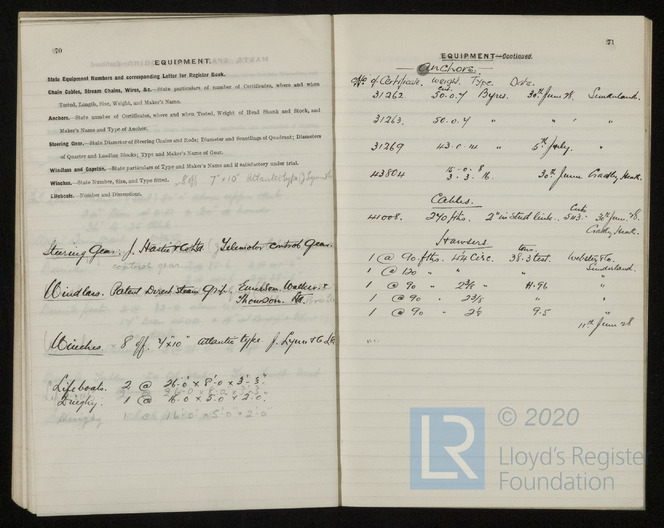 70
EQUIPMENT.
State Equipment Numbers and corresponding Letter for Register Book.
Chain Cables, Stream Chains, Wires, &c.—State particulars of number of Certificates, where and when
Tested, Length, Size, Weight, and Maker's Name.
Anchors.—State number of Certificates, where and when Tested, Weight of Head Shank and Stock, and
Maker's Name and Type of Anchor.
Steering Gear.—State Diameter of Steering Chains and Rods; Diameter and Scantlings of Quadrant; Diameters
of Quarter and Leading Blocks; Type and Maker's Name of Gear.
Windlass and Capstan.—State particulars of Type and Makers Name and if satisfactory under trial.
Winches.—State Number, Size, and Type fitted. 8 off 7" x 10"
Lifeboats.—Number and Dimensions.
Steering Gear. J. Hastie & Co Ltd. Telemotor control gear.
Windlass. Patent Direct steam grip. Emerson, Walker &
Thompson. Ltd.
Winches - 8 off. 7 x 10" atlantic type. J. Lynn & Co Ld
Lifeboats. 2 @ 26'-0 x 8'-0 x 3'-3"
Dinghy. 1 @ 16'-0" x 5'-0" x 2'-0"
71
EQUIPMENT—Continued.
Anchors.
No. of Certificate. Weight. Type. Date.
31262 50.0.7 Byers. 30th June 28. Sunderland.
31263. 50.0.7 " " " "
31269 43.0.14 " 5th July. "
43804 15-0-8 30th June Cradley Heath.
3-3-16.
Cables.
41008. 270 fths. 2" in stud link. 543. June 28.
Cradley Heath.
Hawsers
tons.
1 @ 90 fths. 4¼ Circ. 38.3 test. Webster & Co.
1 @ 120 " " " Sunderland.
1 @ 90 " " "
1 @ 90 " " "
1 @ 90 " " 9.5 "
11th June 28
© 2020
LR
Lloyd's Register
Foundation